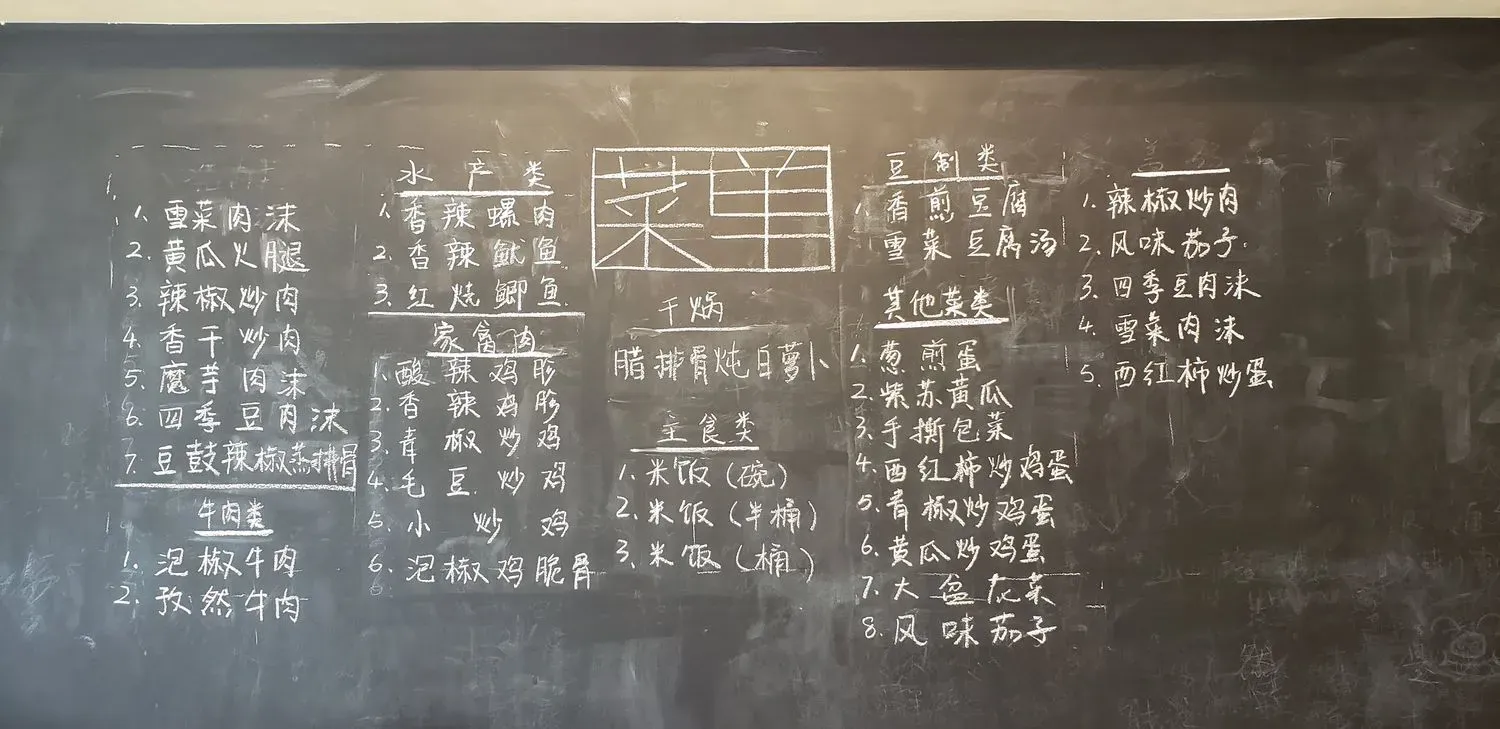 菜单
1. 雪菜肉沫
2. 黄瓜火腿
3. 辣椒炒肉
4. 香干炒肉
5. 魔芋肉沫
6. 四季豆肉沫
7. 豆鼓辣椒蒸排骨
牛肉类
1. 泡椒牛肉
2. 孜然牛肉
水产类
1. 香辣螺肉
2. 香辣鱿鱼
3. 红烧鲫鱼
家禽肉
1. 酸辣鸡胗
2. 香辣鸡胗
3. 青椒炒鸡
4. 毛豆炒鸡
5. 小炒鸡
6. 泡椒鸡脆骨
干煱
腊排骨炖白萝卜
主食类
1. 米饭(碗)
2. 米饭(半桶)
3. 米饭(桶)
豆制类
1. 香煎豆腐
雪菜豆腐汤
其他菜类
1. 葱煎蛋
2. 紫苏黄瓜
3. 手撕包菜
4. 西红柿炒鸡蛋
5. 青椒炒鸡蛋
6. 黄瓜炒鸡蛋
7. 大盆花菜
8. 风味茄子
1. 辣椒炒肉
2. 风味茄子
3. 四季豆肉沫
4. 雪菜肉沫
5. 西红柿炒蛋